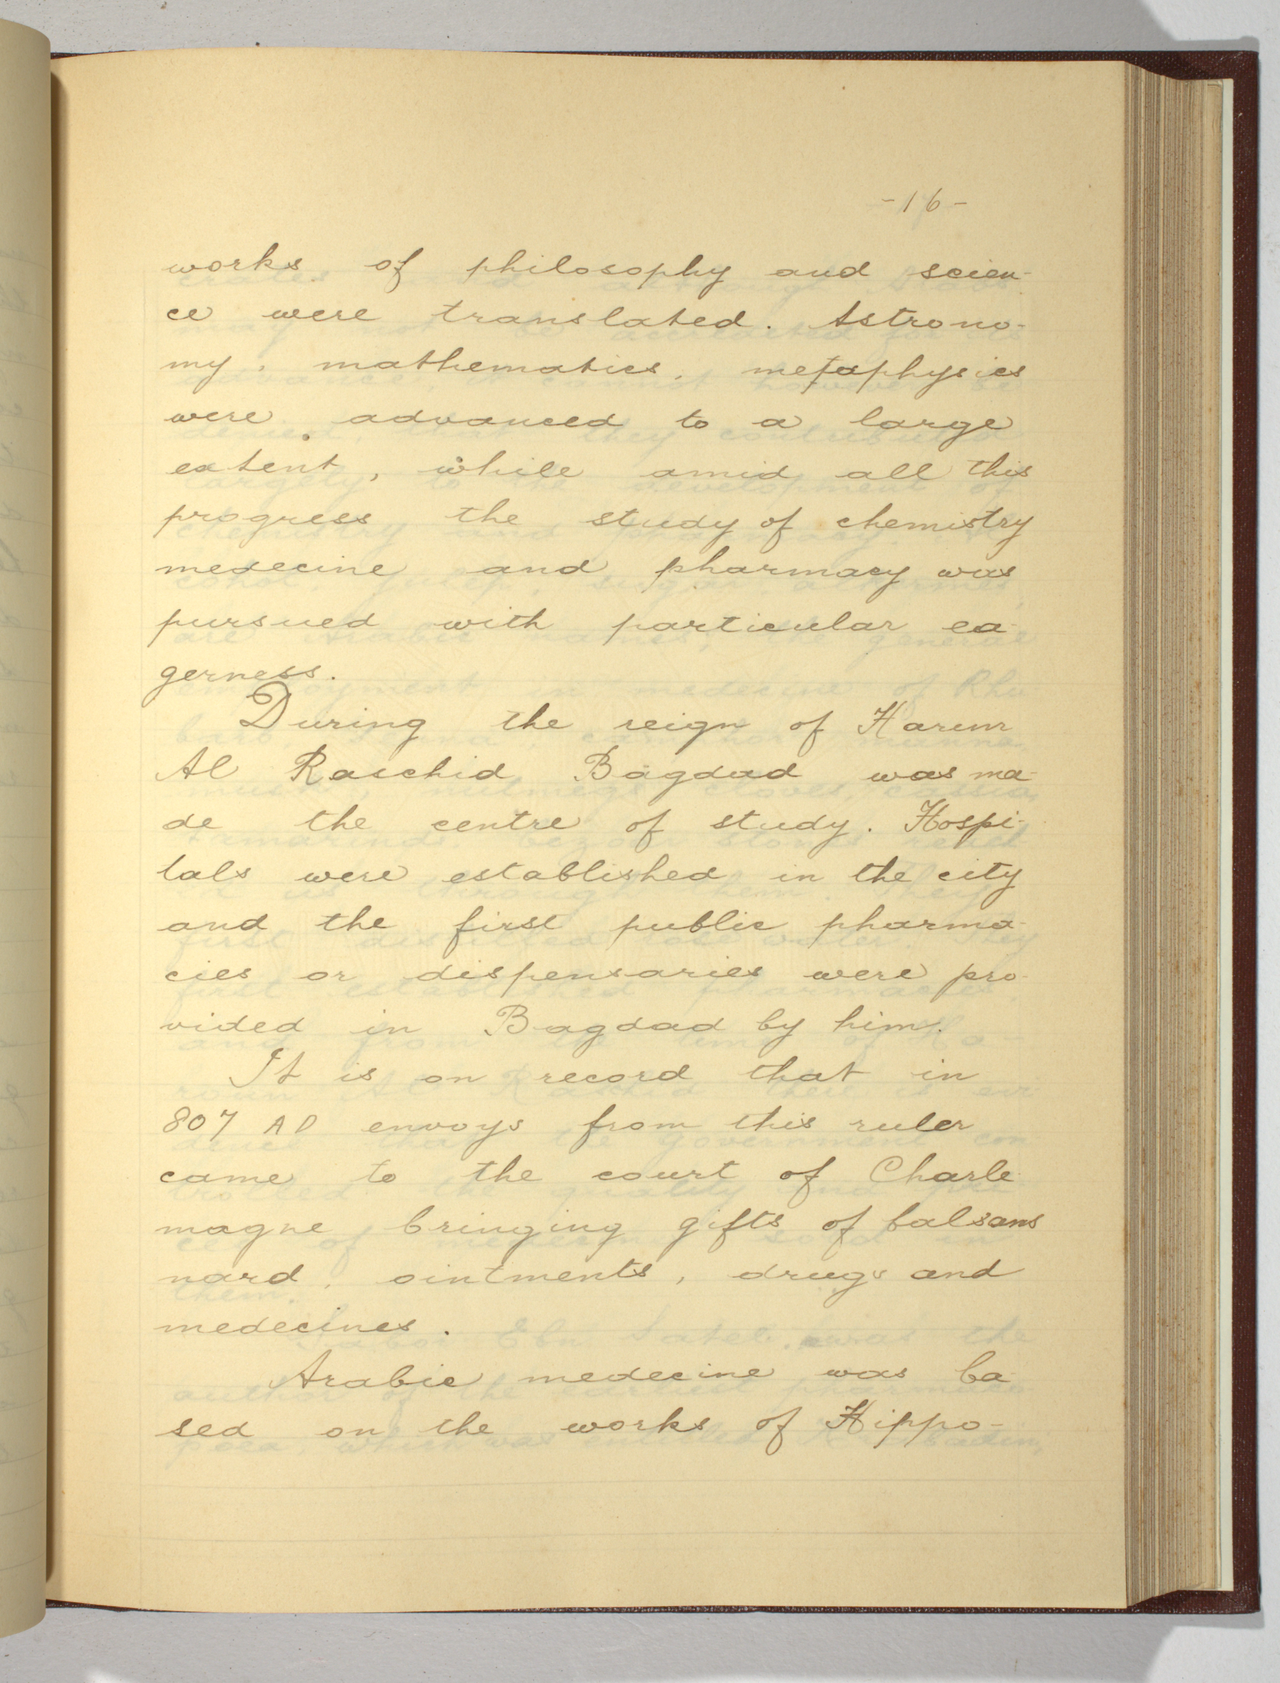 -16-
works of philosophy and scien-
ce were translated. Astrono-
my, mathematics, metaphysics
were advanced to a large
extent, while amid all this
progress the study of chemistry
medecine and pharmacy was
pursued with particular ea-
gerness.
During the reign of Harum
Al Raschid Bagdad was ma-
de the centre of study. Hospi-
tals were established in the city
and the first public pharma-
cies or dispensaries were pro-
vided in Bagdad by him.
It is on record that in
807 AD envoys from this ruler
came to the court of Charle-
magne bringing gifts of balsans
nard, ointments, drugs and
medecines.
Arabic medecine was ba-
sed on the works of Hippo-